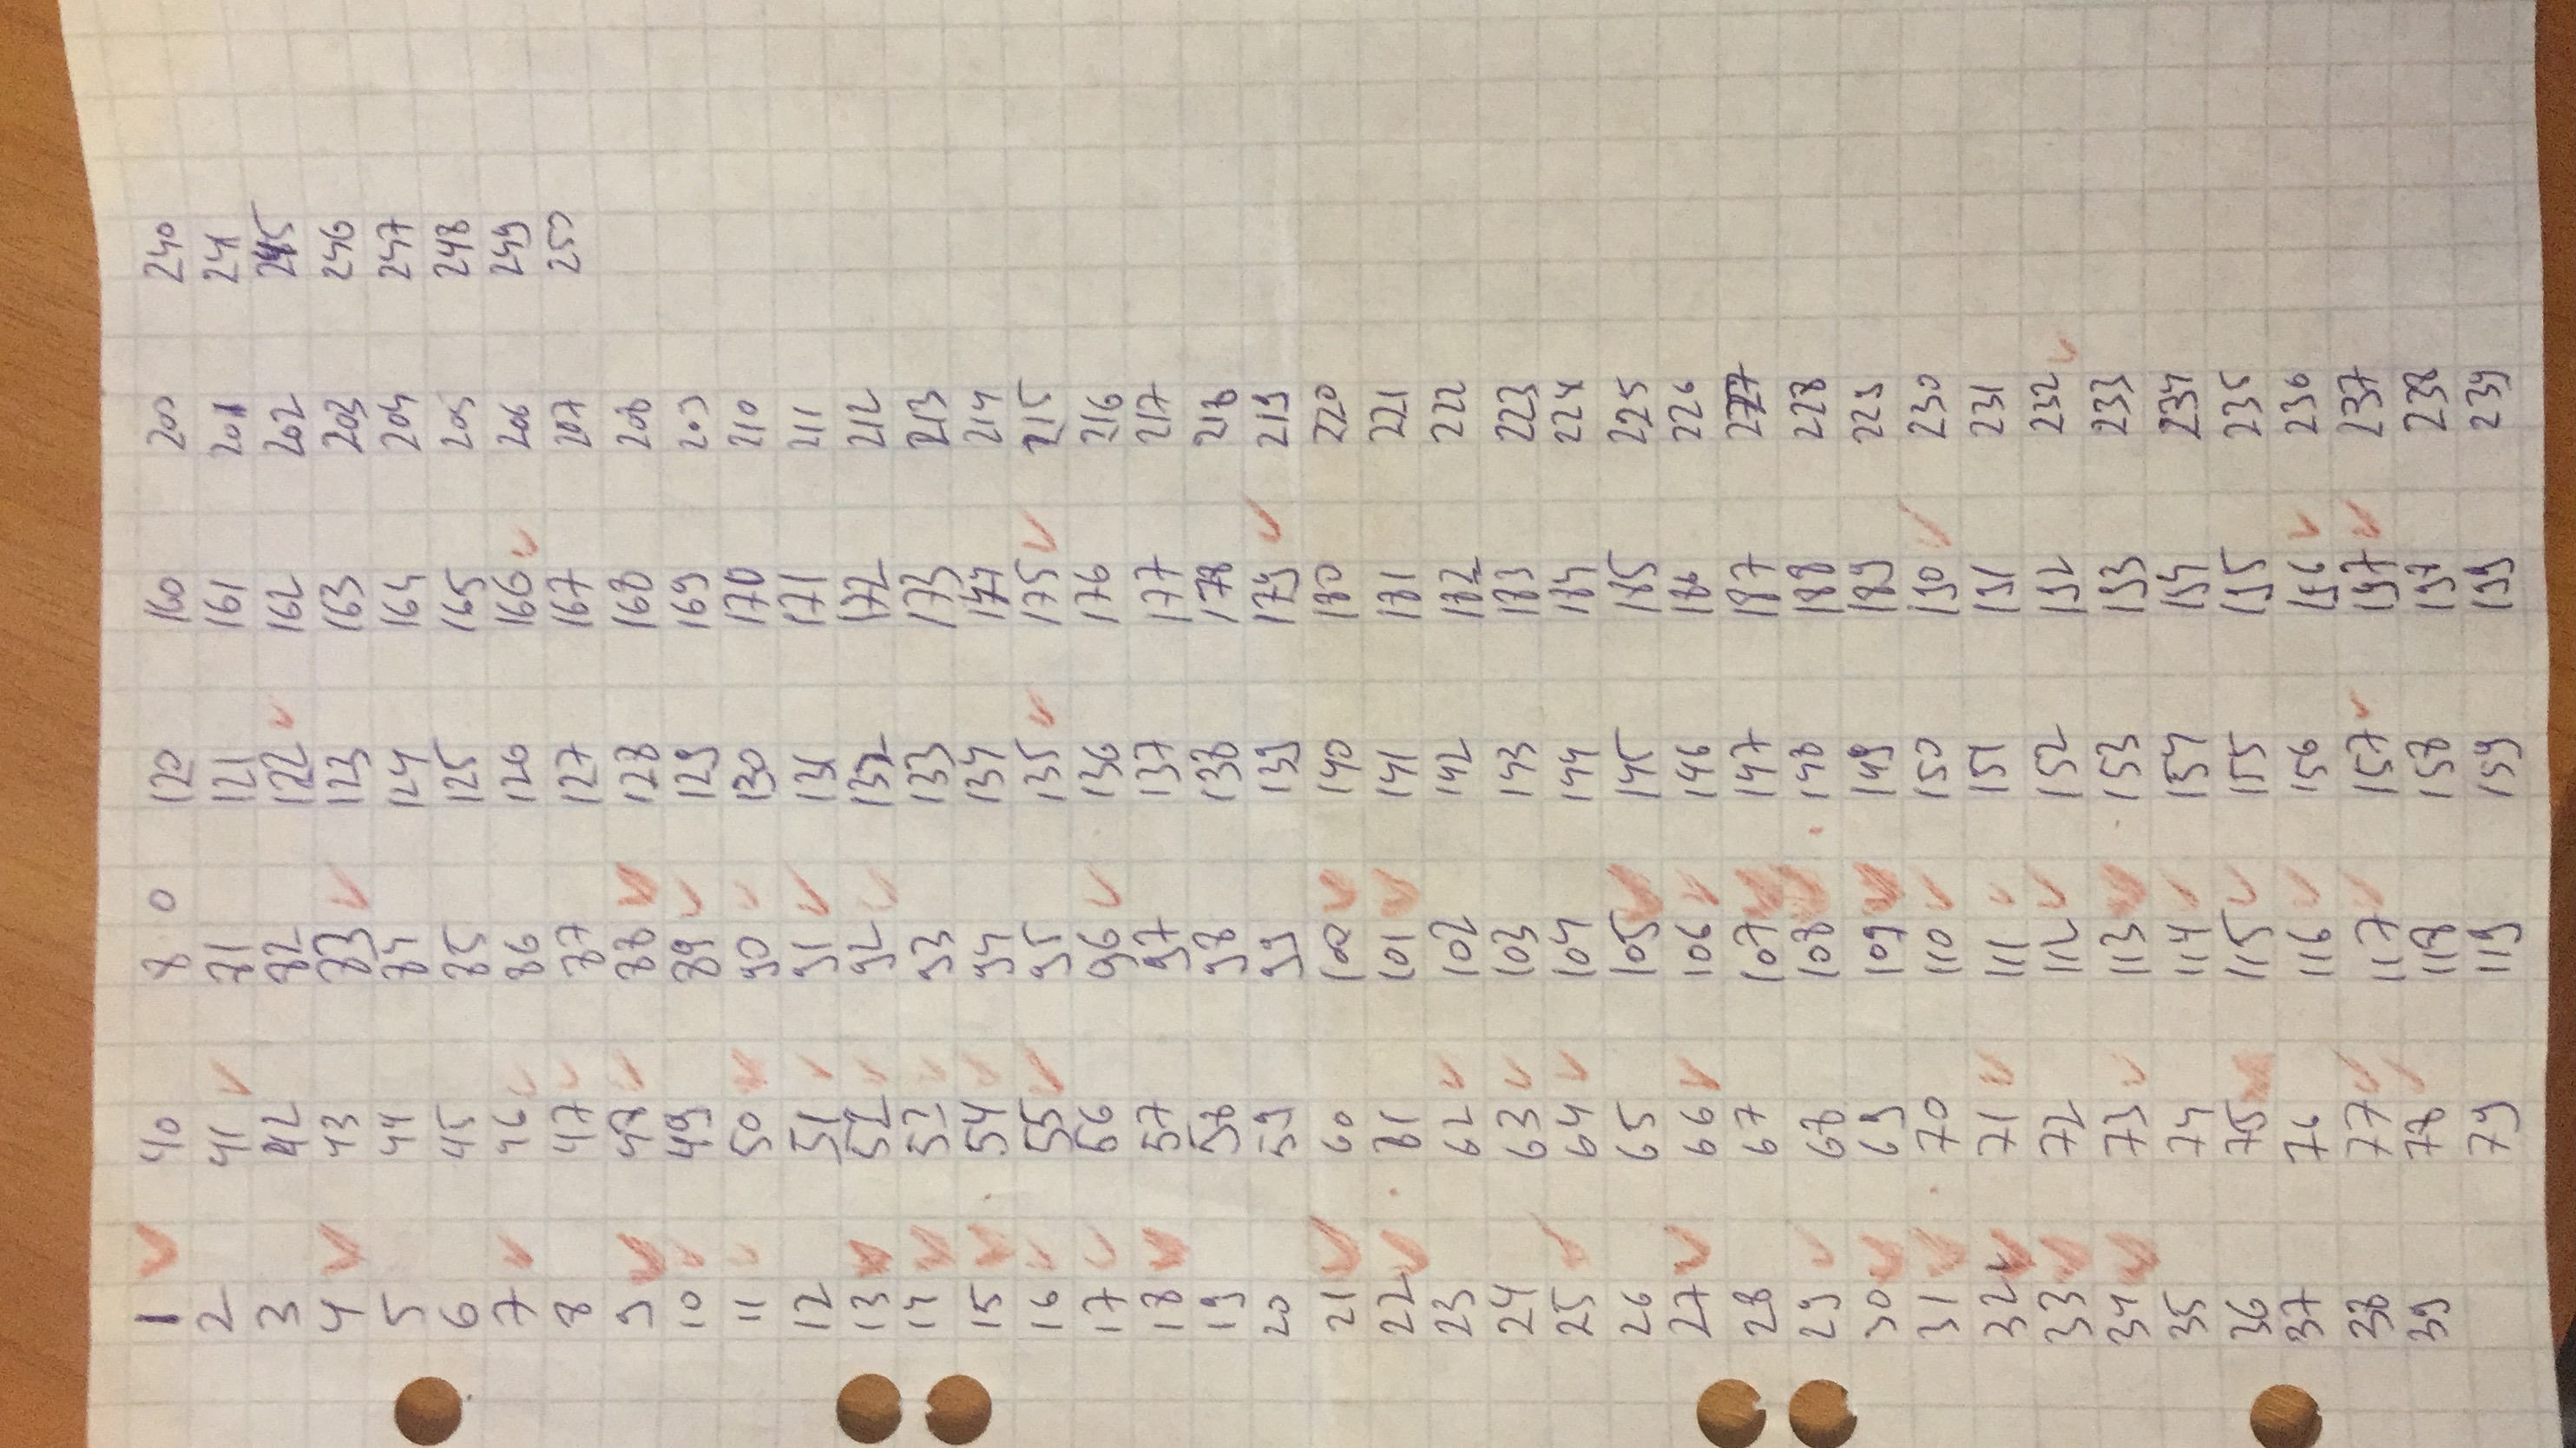 1 40 80 120 160 200 240
2 41 81 121 161 201 241
3 42 82 122 162 202 245
4 43 83 123 163 203 246
5 44 84 124 164 204 247
6 45 85 125 165 205 248
7 46 86 126 166 206 249
8 47 87 127 167 207 250
9 48 88 128 168 208
10 49 89 129 169 209
11 50 90 130 170 210
12 51 91 131 171 211
13 52 92 132 172 212
14 53 93 133 173 213
15 54 94 134 174 214
16 55 95 135 175 215
17 56 96 136 176 216
18 57 97 137 177 217
19 58 98 138 178 218
20 59 99 139 179 219
21 60 100 140 180 220
22 61 101 141 181 221
23 62 102 142 182 222
24 63 103 143 183 223
25 64 104 144 184 224
26 65 105 145 185 225
27 66 106 146 186 226
28 67 107 147 187 227
29 68 108 148 188 228
30 69 109 149 189 229
31 70 110 150 190 230
32 71 111 151 191 231
33 72 112 152 192 232
34 73 113 153 193 233
35 74 114 154 194 234
36 75 115 155 195 235
37 76 116 156 196 236
38 77 117 157 197 237
39 78 118 158 198 238
79 119 159 199 239